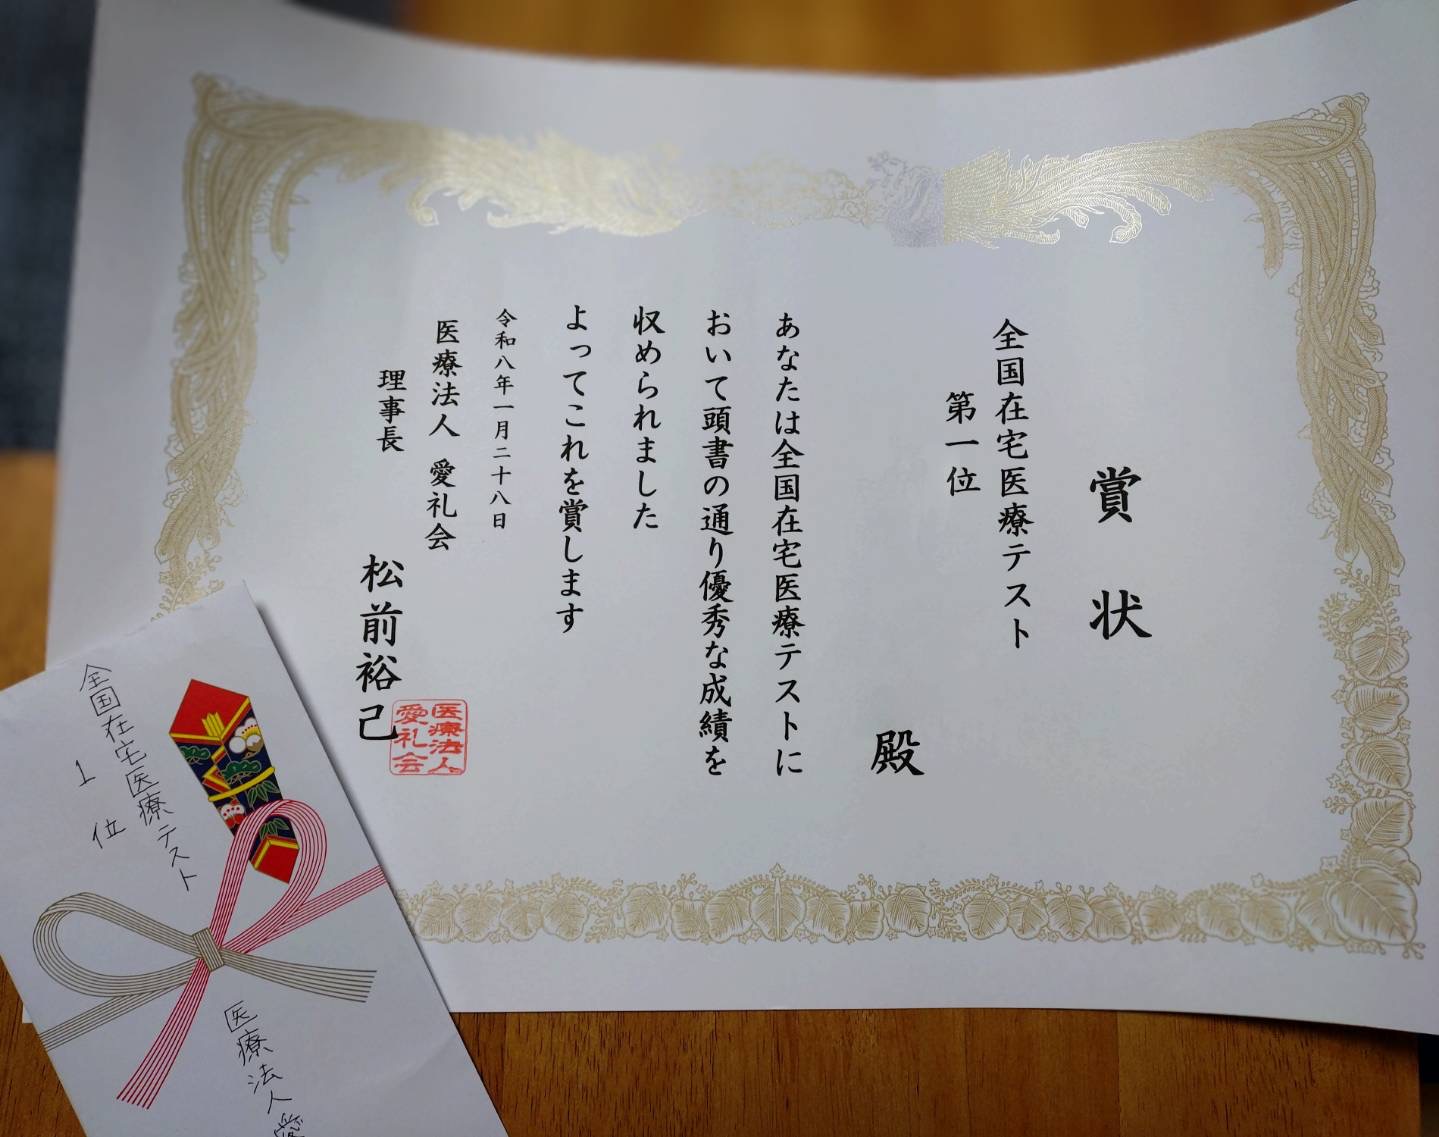 賞状
全国在宅医療テスト
第一位
殿
あなたは全国在宅医療テストに
おいて頭書の通り優秀な成績を
収められました
よってこれを賞します
令和八年一月二十八日
医療法人 愛礼会
理事長
松前裕己
医療法人
愛礼会
全国在宅医療テスト
1位
医療法人愛